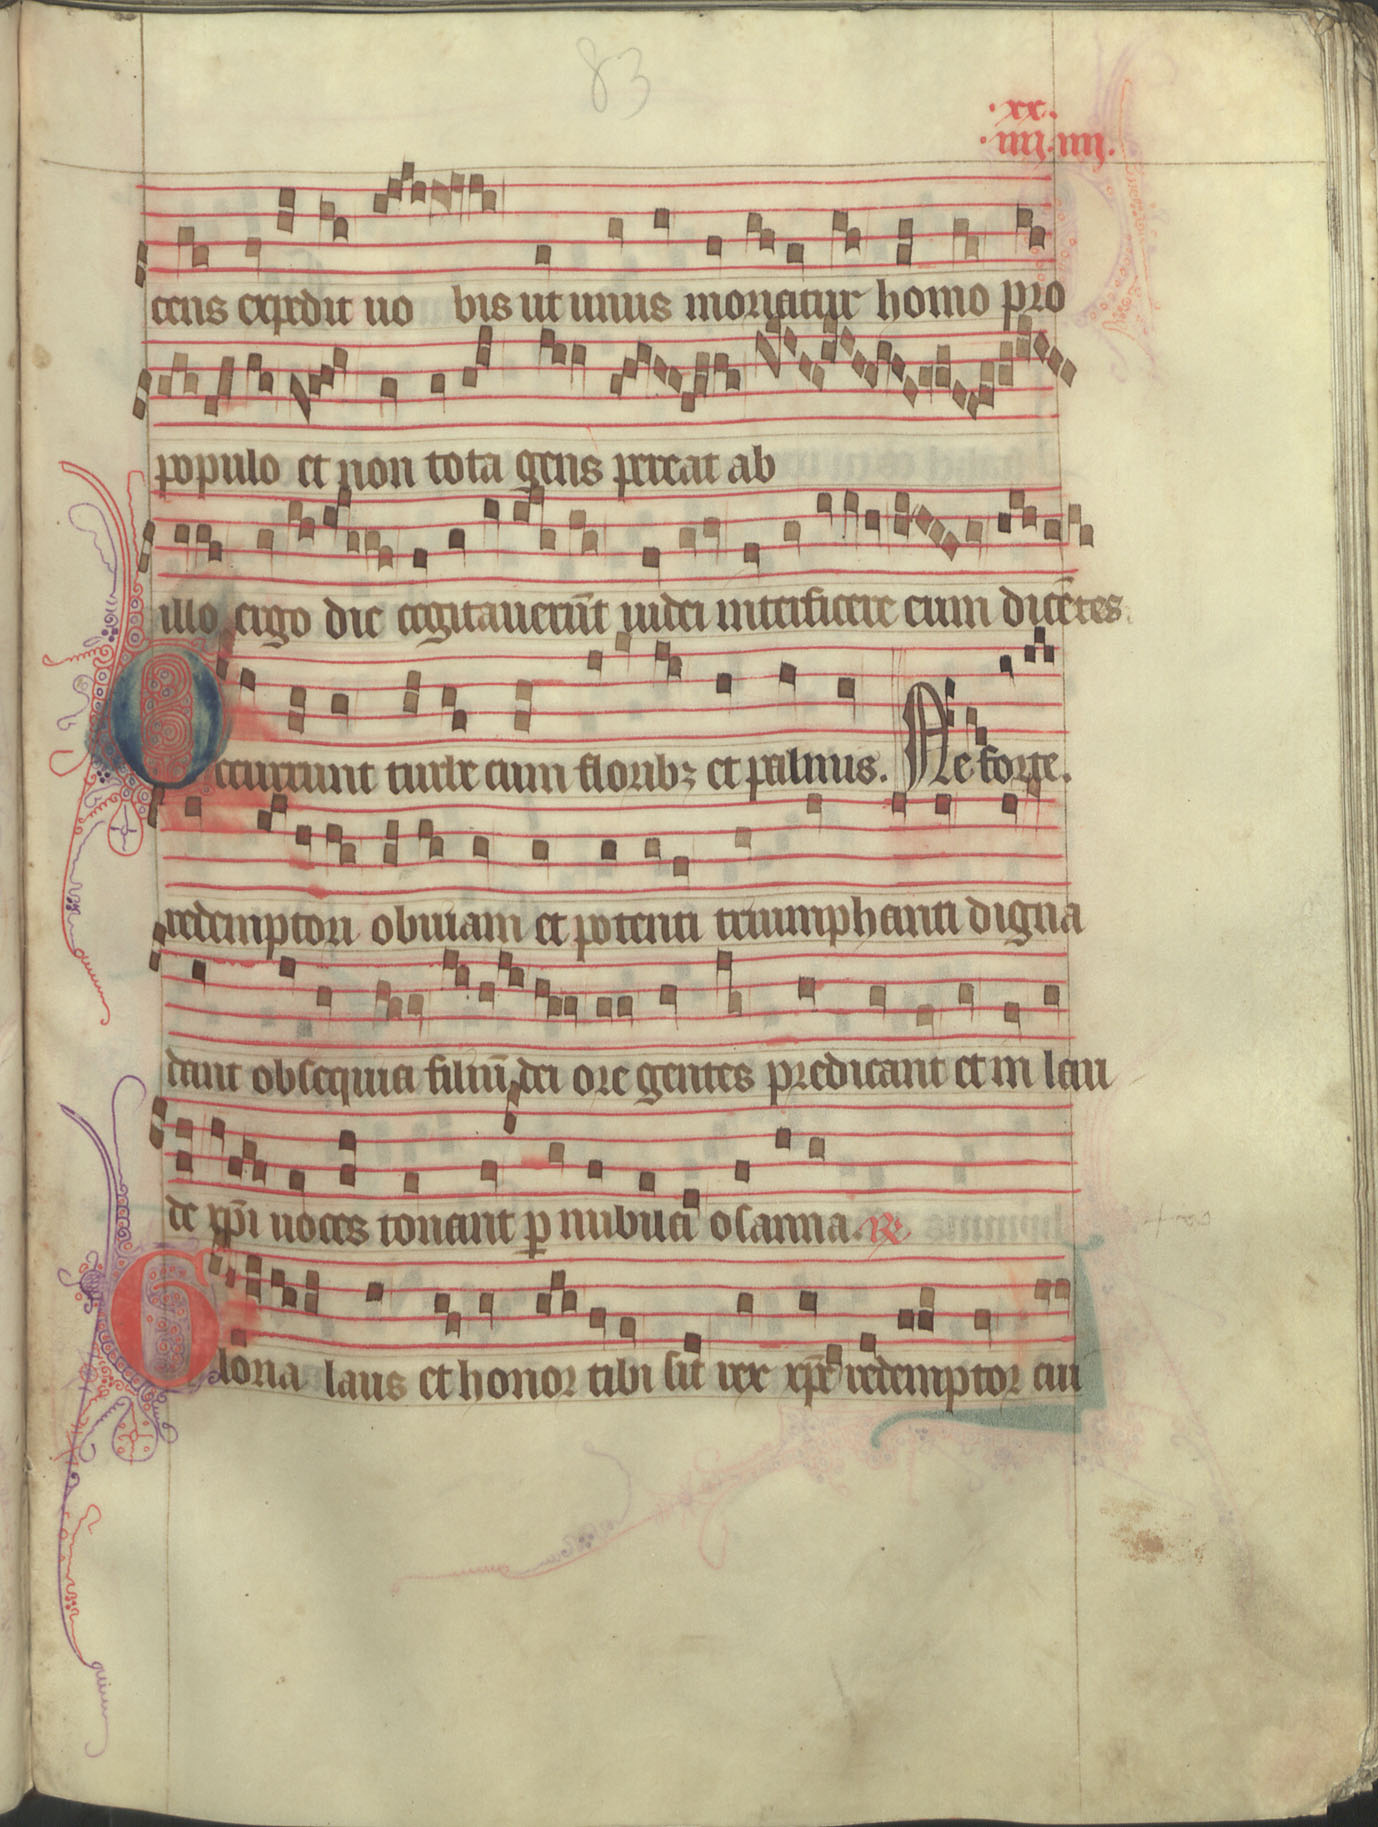 83
.xx.
.iiij.iiij.
cens expedit uo bis ut unus moriatur homo pro
populo et non tota gens pereat ab
illo ergo die cogitauerūt iudei interficere eum dicētes
Occurrunt turbe cum floribꝫ et palmis. Ne forte.
redemptori obuiam et potenti triumphanti digna
dant obsequia filiū dei ore gentes predicant et in lau
de xp̄i uoces tonant ꝑ nubila osanna. ℟
Gloria laus et honor tibi sit rex xp̄e redemptor cui